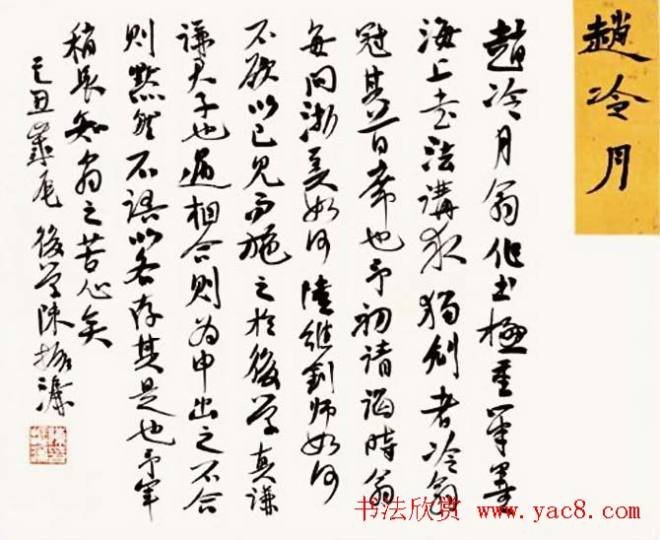 趙冷月
趙冷月翁作書極重筆墨
海上書法講求獨創者冷翁
冠其首席也予初請謁時翁
每問浙美如何陸維釗師如何
不欲以己見而施之於後學真謙
謙君子也遇相合則為申出之不合
則默然不語以各存其是也予年
稍長知翁之苦心矣
己丑歲尾後學陳振濂
书法欣赏 www.yac8.com